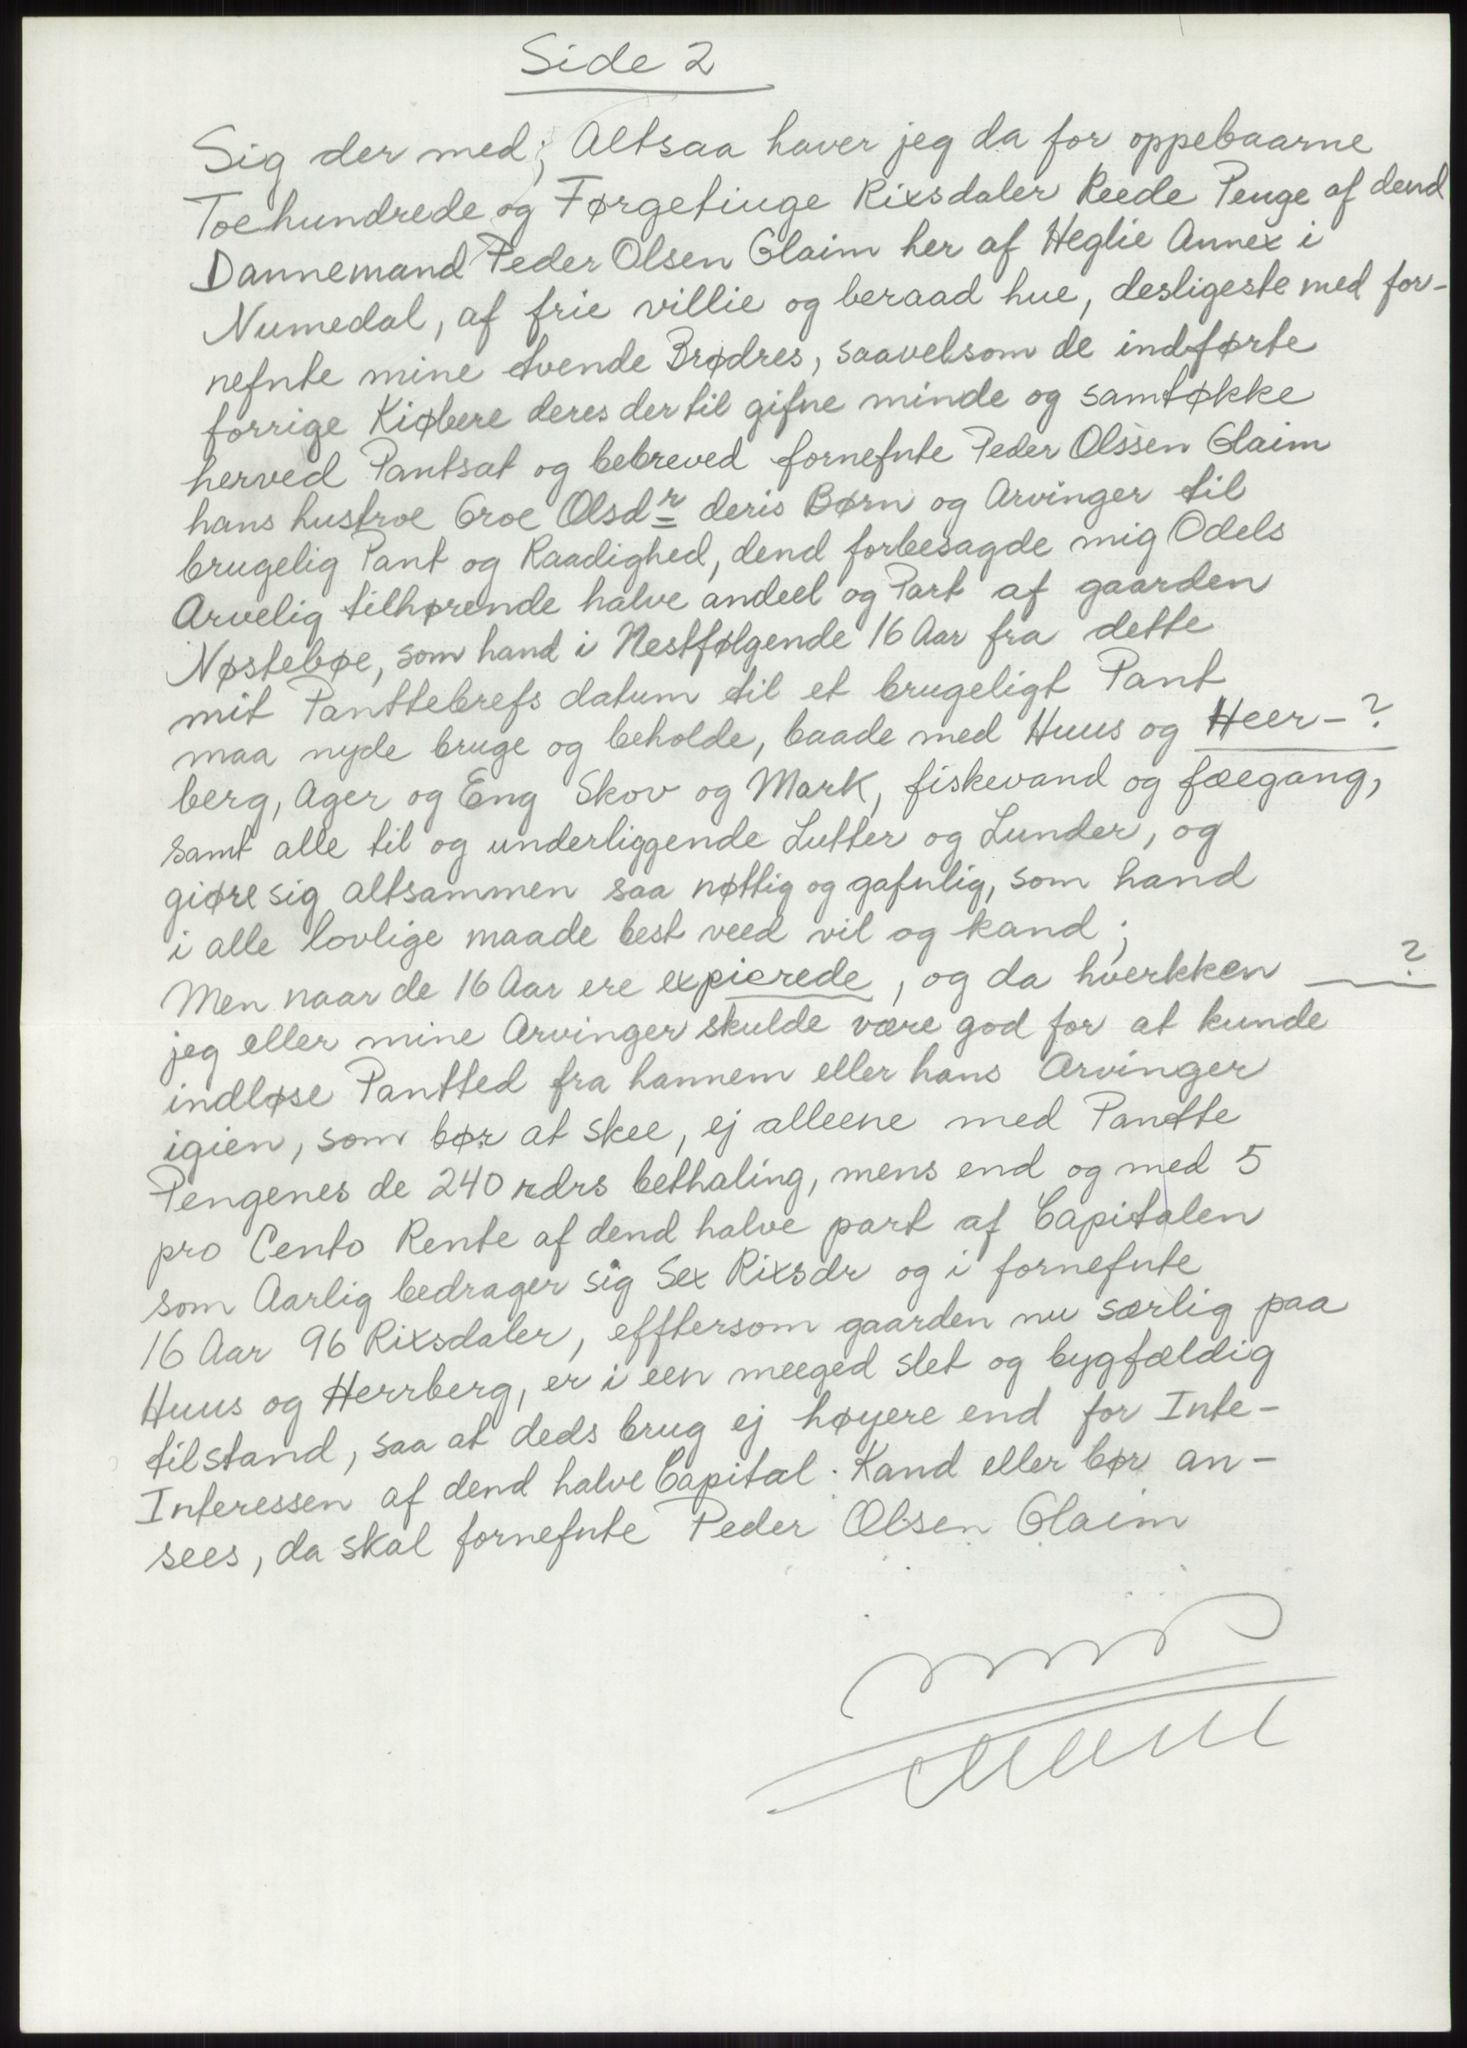 Side 2
Sig der med; Altsaa haver jeg da for oppebaarne
Toehundrede og Førgetiuge Rixsdaler Reede Penge af dend
Dannemand Peder Olsen Glaim her af Heglie Annex i
Numedal, af frie villie og beraad hue, desligeste med for-
nefnte mine tvende Brødres, saavelsom de indførte
forrige Kiøbere deres der til gifne minde og samtøkke
herved Pantsat og bebreved fornefnte Peder Olssen Glaim
hans hustroe Groe Olsdr deris Børn og Arvinger til
brugelig Pant og Raadighed, dend forbesagde mig Odels
Arvelig tilhørende halve andeel og Part af gaarden
Nøstebøe, som hand i Nestfølgende 16 Aar fra dette
mit Panttebrefs datum til et brugeligt Pant
maa nyde bruge og beholde, baade med Huus og Heer-?
berg, Ager og Eng Skov og Mark, fiskevand og fæegang,
samt alle til og underliggende Lutter og Lunder, og
giøre sig altsammen saa nøttig og gafnlig, som hand
i alle lovlige maade best veed vil og kand;
Men naar de 16 Aar ere expierede, og da hverkken ?
jeg eller mine Arvinger skulde være god for at kunde
indløse Pantted fra hannem eller hans Arvinger
igien, som bør at skee, ej alleene med Pandte
Pengenes de 240 rdrs bethaling, mens end og med 5
pro Cento Rente af dend halve part af Capitalen
som Aarlig bedrager sig Sex Rixsdr og i fornefnte
16 Aar 96 Rixsdaler, efftersom gaarden nu særlig paa
Huus og Herrberg, er i een meeged slet og bygfældig
tilstand, saa at deds brug ej høyere end for Inte-
Interessen af dend halve Capital. Kand eller bør an-
sees, da skal fornefnte Peder Olsen Glaim